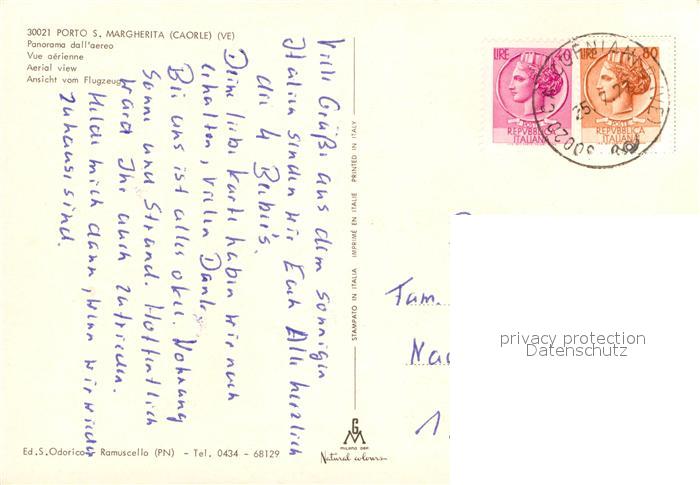 30021 PORTO S. MARGHERITA (CAORLE) (VE)
Panorama dall'aereo
Vue aérienne
Aerial view
Ansicht vom Flugzeug
Viele Grüße aus dem sonnigen
Italien senden wir Euch Alle herzlich
die 4
Deine liebe Karte haben wir noch
erhalten, vielen Dank.
Bei uns ist alles okee. Wohnung
Sonne und Strand. Hoffentlich
ward Ihr auch zufrieden.
Melde mich dann, wenn wir wieder
zuhause sind.
STAMPATO IN ITALIA IMPRIMÉ EN ITALIE PRINTED IN ITALY
LIRE
REPVBBLICA
ITALIANA
LIRE 80
REPVBBLICA
ITALIANA
Fam.
1
privacy protection
Datenschutz
Ed. S. Odorico - Ramuscello (PN) - Tel. 0434 - 68129
Natural colours